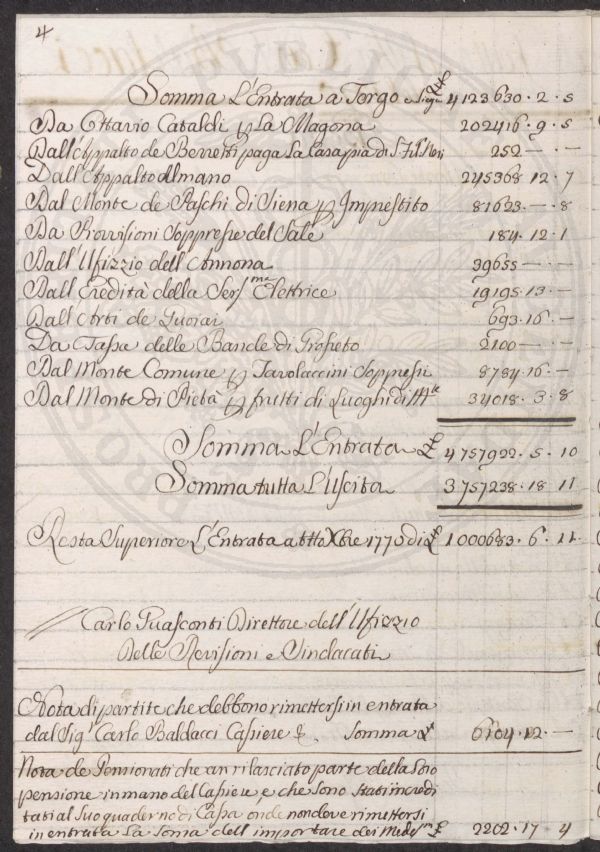 4
Somma L'Entrata a Tergo e Segue £ 4123630 . 2 . 5
Da Ottavio Cataldi p La Magona 202416 . 9 . 5
Dall'Appalto de Berretti paga La Casa pia di S. Fil. Neri 252 — . —
Dall'Appalto Almano 245368 . 12 . 7
Dal Monte de Paschi di Siena p Imprestito 81633 . — . 8
Da Provvisioni Soppresse del Sale 184 . 12 . 1
Dall'Ufizzio dell'Annona 39655 — . —
Dall'Eredità della Serma Elettrice 19195 . 13 . —
Dall'Arti de Quoiai 693 . 16 . —
Da Tassa delle Bande di Grosseto 2100 — . —
Dal Monte Comune p Tavolaccini Soppressi 8784 . 16 . —
Dal Monte di Pietà p frutti di Luoghi di Mte 34018 . 3 . 8
Somma L'Entrata £ 4757922 . 5 . 10
Somma tutta L'Uscita 3757238 . 18 . 11
Resta Superiore L'Entrata a ttto Xbre 1770 di £ 1000683 . 6 . 11
// Carlo Guasconti Direttore dell'Ufizzio
delle Revisioni e Sindacati
Nota di partite che debbono rimettersi in entrata
dal Sigr Carlo Baldacci Cassiere &. Somma £ 6104 . 12 . —
Nota de Pensionati che an rilasciato parte della Loro
pensione in mano del Cassiere, e che sono stati in credi
tati al Suo quaderno di Cassa onde non deve rimettersi
in entrata La Soma dell'importare dei Medmi £ 2202 . 17 . 4